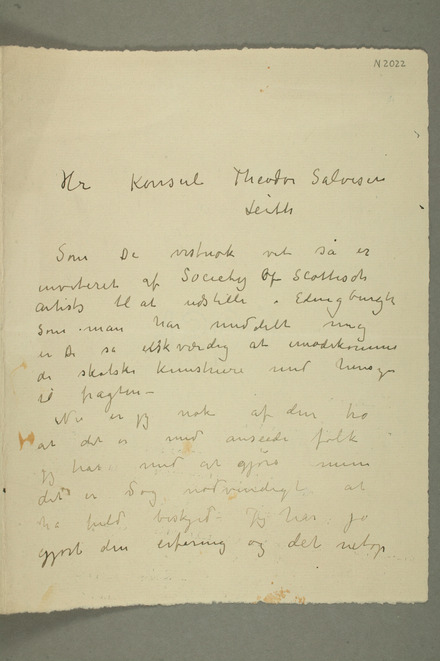 N 2022
Hr Konsul Theodor Salvesen
Leith
Som De vistnok vet så er
inviteret af Society Of Scottisch
artists til at udstille i Edingburgh
Som man har meddelt mig
er De så elskværdig at imødekomme
de skotske kunstnere med hensyn
til fragten –
Nu er jeg nok af den tro
at det er med ansede folk
jeg har med at gjøre men
det er dog nødvendigt at
ha fuld beskjed. Jeg har jo
gjort den erfaring og det netop